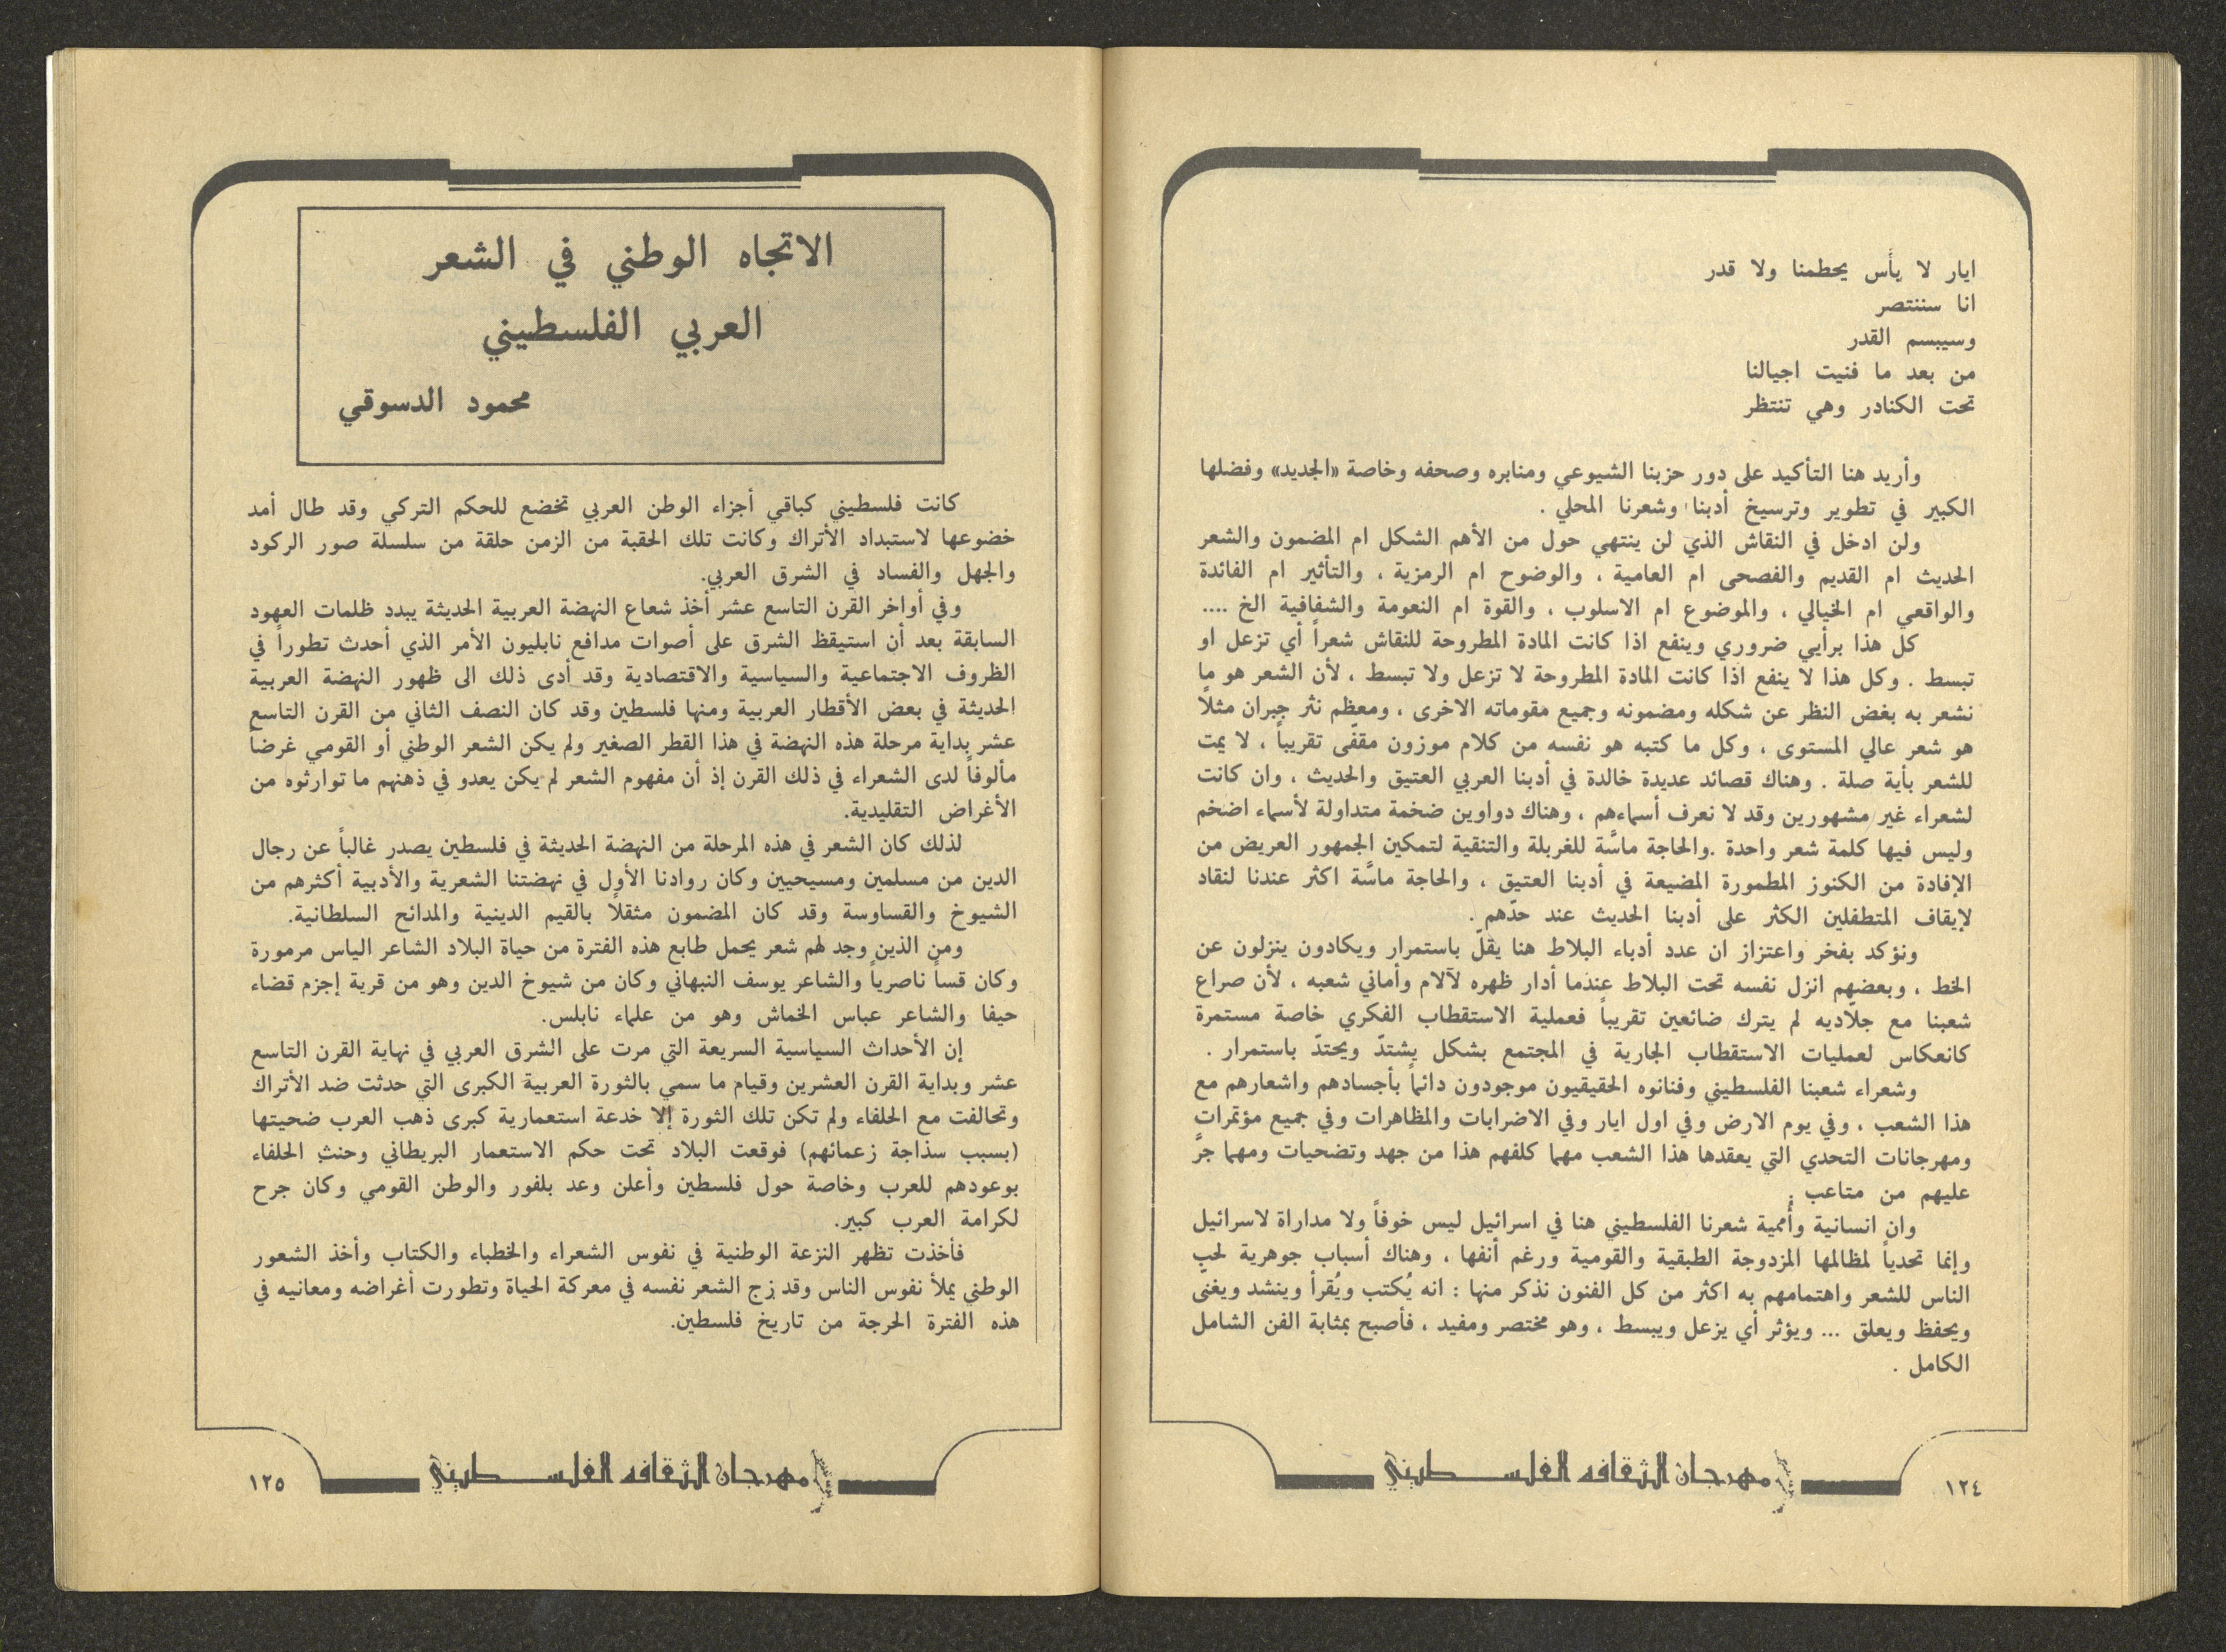 ايار لا يأس يحطمنا ولا قدر
انا سننتصر
وسيبسم القدر
من بعد ما فنيت اجيالنا
تحت الكنادر وهي تنتظر
وأريد هنا التأكيد على دور حزبنا الشيوعي ومنابره وصحفه وخاصة «الجديد» وفضلها
الكبير في تطوير وترسيخ أدبنا وشعرنا المحلي .
ولن ادخل في النقاش الذي لن ينتهي حول من الأهم الشكل ام المضمون والشعر
الحديث ام القديم والفصحى ام العامية ، والوضوح ام الرمزية ، والتأثير ام الفائدة
والواقعي ام الخيالي ، والموضوع ام الاسلوب ، والقوة ام النعومة والشفافية الخ ....
كل هذا برأيي ضروري وينفع اذا كانت المادة المطروحة للنقاش شعراً أي تزعل او
تبسط . وكل هذا لا ينفع اذا كانت المادة المطروحة لا تزعل ولا تبسط ، لأن الشعر هو ما
نشعر به بغض النظر عن شكله ومضمونه وجميع مقوماته الاخرى ، ومعظم نثر جبران مثلاً
هو شعر عالي المستوى ، وكل ما كتبه هو نفسه من كلام موزون مقفّى تقريباً ، لا يمت
للشعر بأية صلة . وهناك قصائد عديدة خالدة في أدبنا العربي العتيق والحديث ، وان كانت
لشعراء غير مشهورين وقد لا نعرف أسماءهم ، وهناك دواوين ضخمة متداولة لأسماء اضخم
وليس فيها كلمة شعر واحدة .والحاجة ماسَّة للغربلة والتنقية لتمكين الجمهور العريض من
الإفادة من الكنوز المطمورة المضيعة في أدبنا العتيق ، والحاجة ماسَّة اكثر عندنا لنقاد
لإيقاف المتطفلين الكثر على أدبنا الحديث عند حدّهم .
ونؤكد بفخر واعتزاز ان عدد أدباء البلاط هنا يقلّ باستمرار ويكادون ينزلون عن
الخط ، وبعضهم انزل نفسه تحت البلاط عندما أدار ظهره لآلام وأماني شعبه ، لأن صراع
شعبنا مع جلاّديه لم يترك ضائعين تقريباً فعملية الاستقطاب الفكري خاصة مستمرة
كانعكاس لعمليات الاستقطاب الجارية في المجتمع بشكل يشتدّ ويحتدّ باستمرار .
وشعراء شعبنا الفلسطيني وفنانوه الحقيقيون موجودون دائماً بأجسادهم واشعارهم مع
هذا الشعب ، وفي يوم الارض وفي اول ايار وفي الاضرابات والمظاهرات وفي جميع مؤتمرات
ومهرجانات التحدي التي يعقدها هذا الشعب مهما كلفهم هذا من جهد وتضحيات ومهما جرَّ
عليهم من متاعب .
وان انسانية وأممية شعرنا الفلسطيني هنا في اسرائيل ليس خوفاً ولا مداراة لاسرائيل
وإنما تحدياً لمظالمها المزدوجة الطبقية والقومية ورغم أنفها ، وهناك أسباب جوهرية لحب
الناس للشعر واهتمامهم به اكثر من كل الفنون نذكر منها : انه يُكتب ويُقرأ وينشد ويغنى
ويحفظ ويعلق ... ويؤثر أي يزعل ويبسط ، وهو مختصر ومفيد ، فأصبح بمثابة الفن الشامل
الكامل .
مهرجان الثقافه الفلسطيني
١٢٤
الاتجاه الوطني في الشعر
العربي الفلسطيني
محمود الدسوقي
كانت فلسطيني كباقي أجزاء الوطن العربي تخضع للحكم التركي وقد طال أمد
خضوعها لاستبداد الأتراك وكانت تلك الحقبة من الزمن حلقة من سلسلة صور الركود
والجهل والفساد في الشرق العربي.
وفي أواخر القرن التاسع عشر أخذ شعاع النهضة العربية الحديثة يبدد ظلمات العهود
السابقة بعد أن استيقظ الشرق على أصوات مدافع نابليون الأمر الذي أحدث تطوراً في
الظروف الاجتماعية والسياسية والاقتصادية وقد أدى ذلك الى ظهور النهضة العربية
الحديثة في بعض الأقطار العربية ومنها فلسطين وقد كان النصف الثاني من القرن التاسع
عشر بداية مرحلة هذه النهضة في هذا القطر الصغير ولم يكن الشعر الوطني أو القومي غرضاً
مألوفاً لدى الشعراء في ذلك القرن إذ أن مفهوم الشعر لم يكن يعدو في ذهنهم ما توارثوه من
الأغراض التقليدية.
لذلك كان الشعر في هذه المرحلة من النهضة الحديثة في فلسطين يصدر غالباً عن رجال
الدين من مسلمين ومسيحيين وكان روادنا الأول في نهضتنا الشعرية والأدبية أكثرهم من
الشيوخ والقساوسة وقد كان المضمون مثقلاً بالقيم الدينية والمدائح السلطانية.
ومن الذين وجد لهم شعر يحمل طابع هذه الفترة من حياة البلاد الشاعر الياس مرمورة
وكان قساً ناصرياً والشاعر يوسف النبهاني وكان من شيوخ الدين وهو من قرية إجزم قضاء
حيفا والشاعر عباس الخماش وهو من علماء نابلس.
إن الأحداث السياسية السريعة التي مرت على الشرق العربي في نهاية القرن التاسع
عشر وبداية القرن العشرين وقيام ما سمي بالثورة العربية الكبرى التي حدثت ضد الأتراك
وتحالفت مع الحلفاء ولم تكن تلك الثورة إلا خدعة استعمارية كبرى ذهب العرب ضحيتها
(بسبب سذاجة زعمائهم) فوقعت البلاد تحت حكم الاستعمار البريطاني وحنث الحلفاء
بوعودهم للعرب وخاصة حول فلسطين وأعلن وعد بلفور والوطن القومي وكان جرح
لكرامة العرب كبير.
فأخذت تظهر النزعة الوطنية في نفوس الشعراء والخطباء والكتاب وأخذ الشعور
الوطني يملأ نفوس الناس وقد زج الشعر نفسه في معركة الحياة وتطورت أغراضه ومعانيه في
هذه الفترة الحرجة من تاريخ فلسطين.
مهرجان الثقافه الفلسطيني
١٢٥